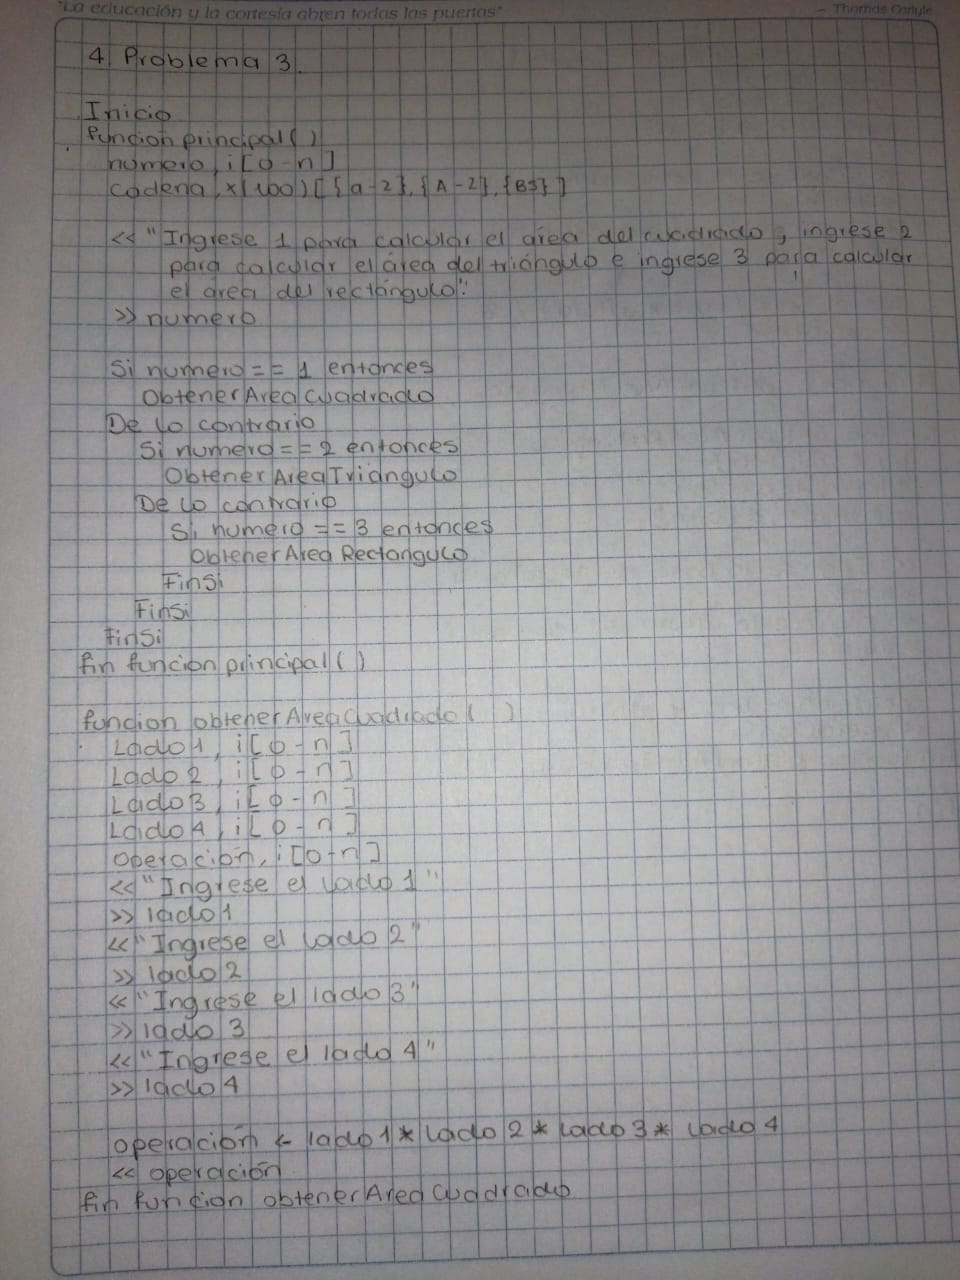 "La educación y la cortesía abren todas las puertas"
- Thomas Carlyle
4. Problema 3.
Inicio
funcion principal ( )
numero, i [0-n]
cadena, x(100) [{a-z}, {A-Z}, {BS}]
<< "Ingrese 1 para calcular el área del cuadrado, ingrese 2
para calcular el área del triángulo e ingrese 3 para calcular
el area del rectángulo".
>> numero
Si numero == 1 entonces
Obtener Area Cuadrado
De lo contrario
Si numero == 2 entonces
Obtener Area Triángulo
De lo contrario
Si numero == 3 entonces
Obtener Area Rectangulo
FinSi
FinSi
FinSi
fin funcion principal ( )
funcion obtener Area Cuadrado ( )
Lado 1, i [0-n]
Lado 2, i [0-n]
Lado 3, i [0-n]
Lado 4, i [0-n]
Operación, i [0-n]
<< "Ingrese el lado 1"
>> lado 1
<< "Ingrese el lado 2"
>> lado 2
<< "Ingrese el lado 3"
>> lado 3
<< "Ingrese el lado 4"
>> lado 4
operación ← lado 1 * lado 2 * lado 3 * lado 4
<< operación
fin funcion obtener Area Cuadrado